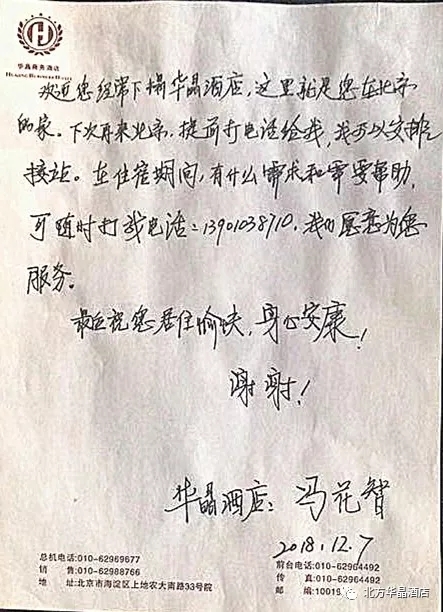 华晶商务酒店
欢迎您经常下榻华晶酒店，这里就是您在北京
的家。下次再来北京，提前打电话给我，我可以安排
接站。在住宿期间，有什么需求和需要帮助，
可随时打我电话：13901038710，我们愿意为您
服务。
最后祝您居住愉快，身心安康！
谢谢！
华晶酒店：冯花智
2018.12.7
总机电话:010-62969677
销 售:010-62988766
地 址:北京市海淀区上地农大南路33号院
前台电话:010-62964492
传 真:010-62964492
邮 编:10019
北方华晶酒店